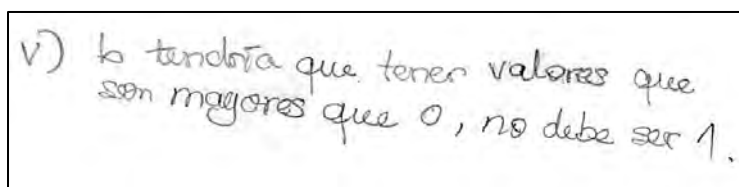 v) b tendría que tener valores que
son mayores que 0, no debe ser 1.